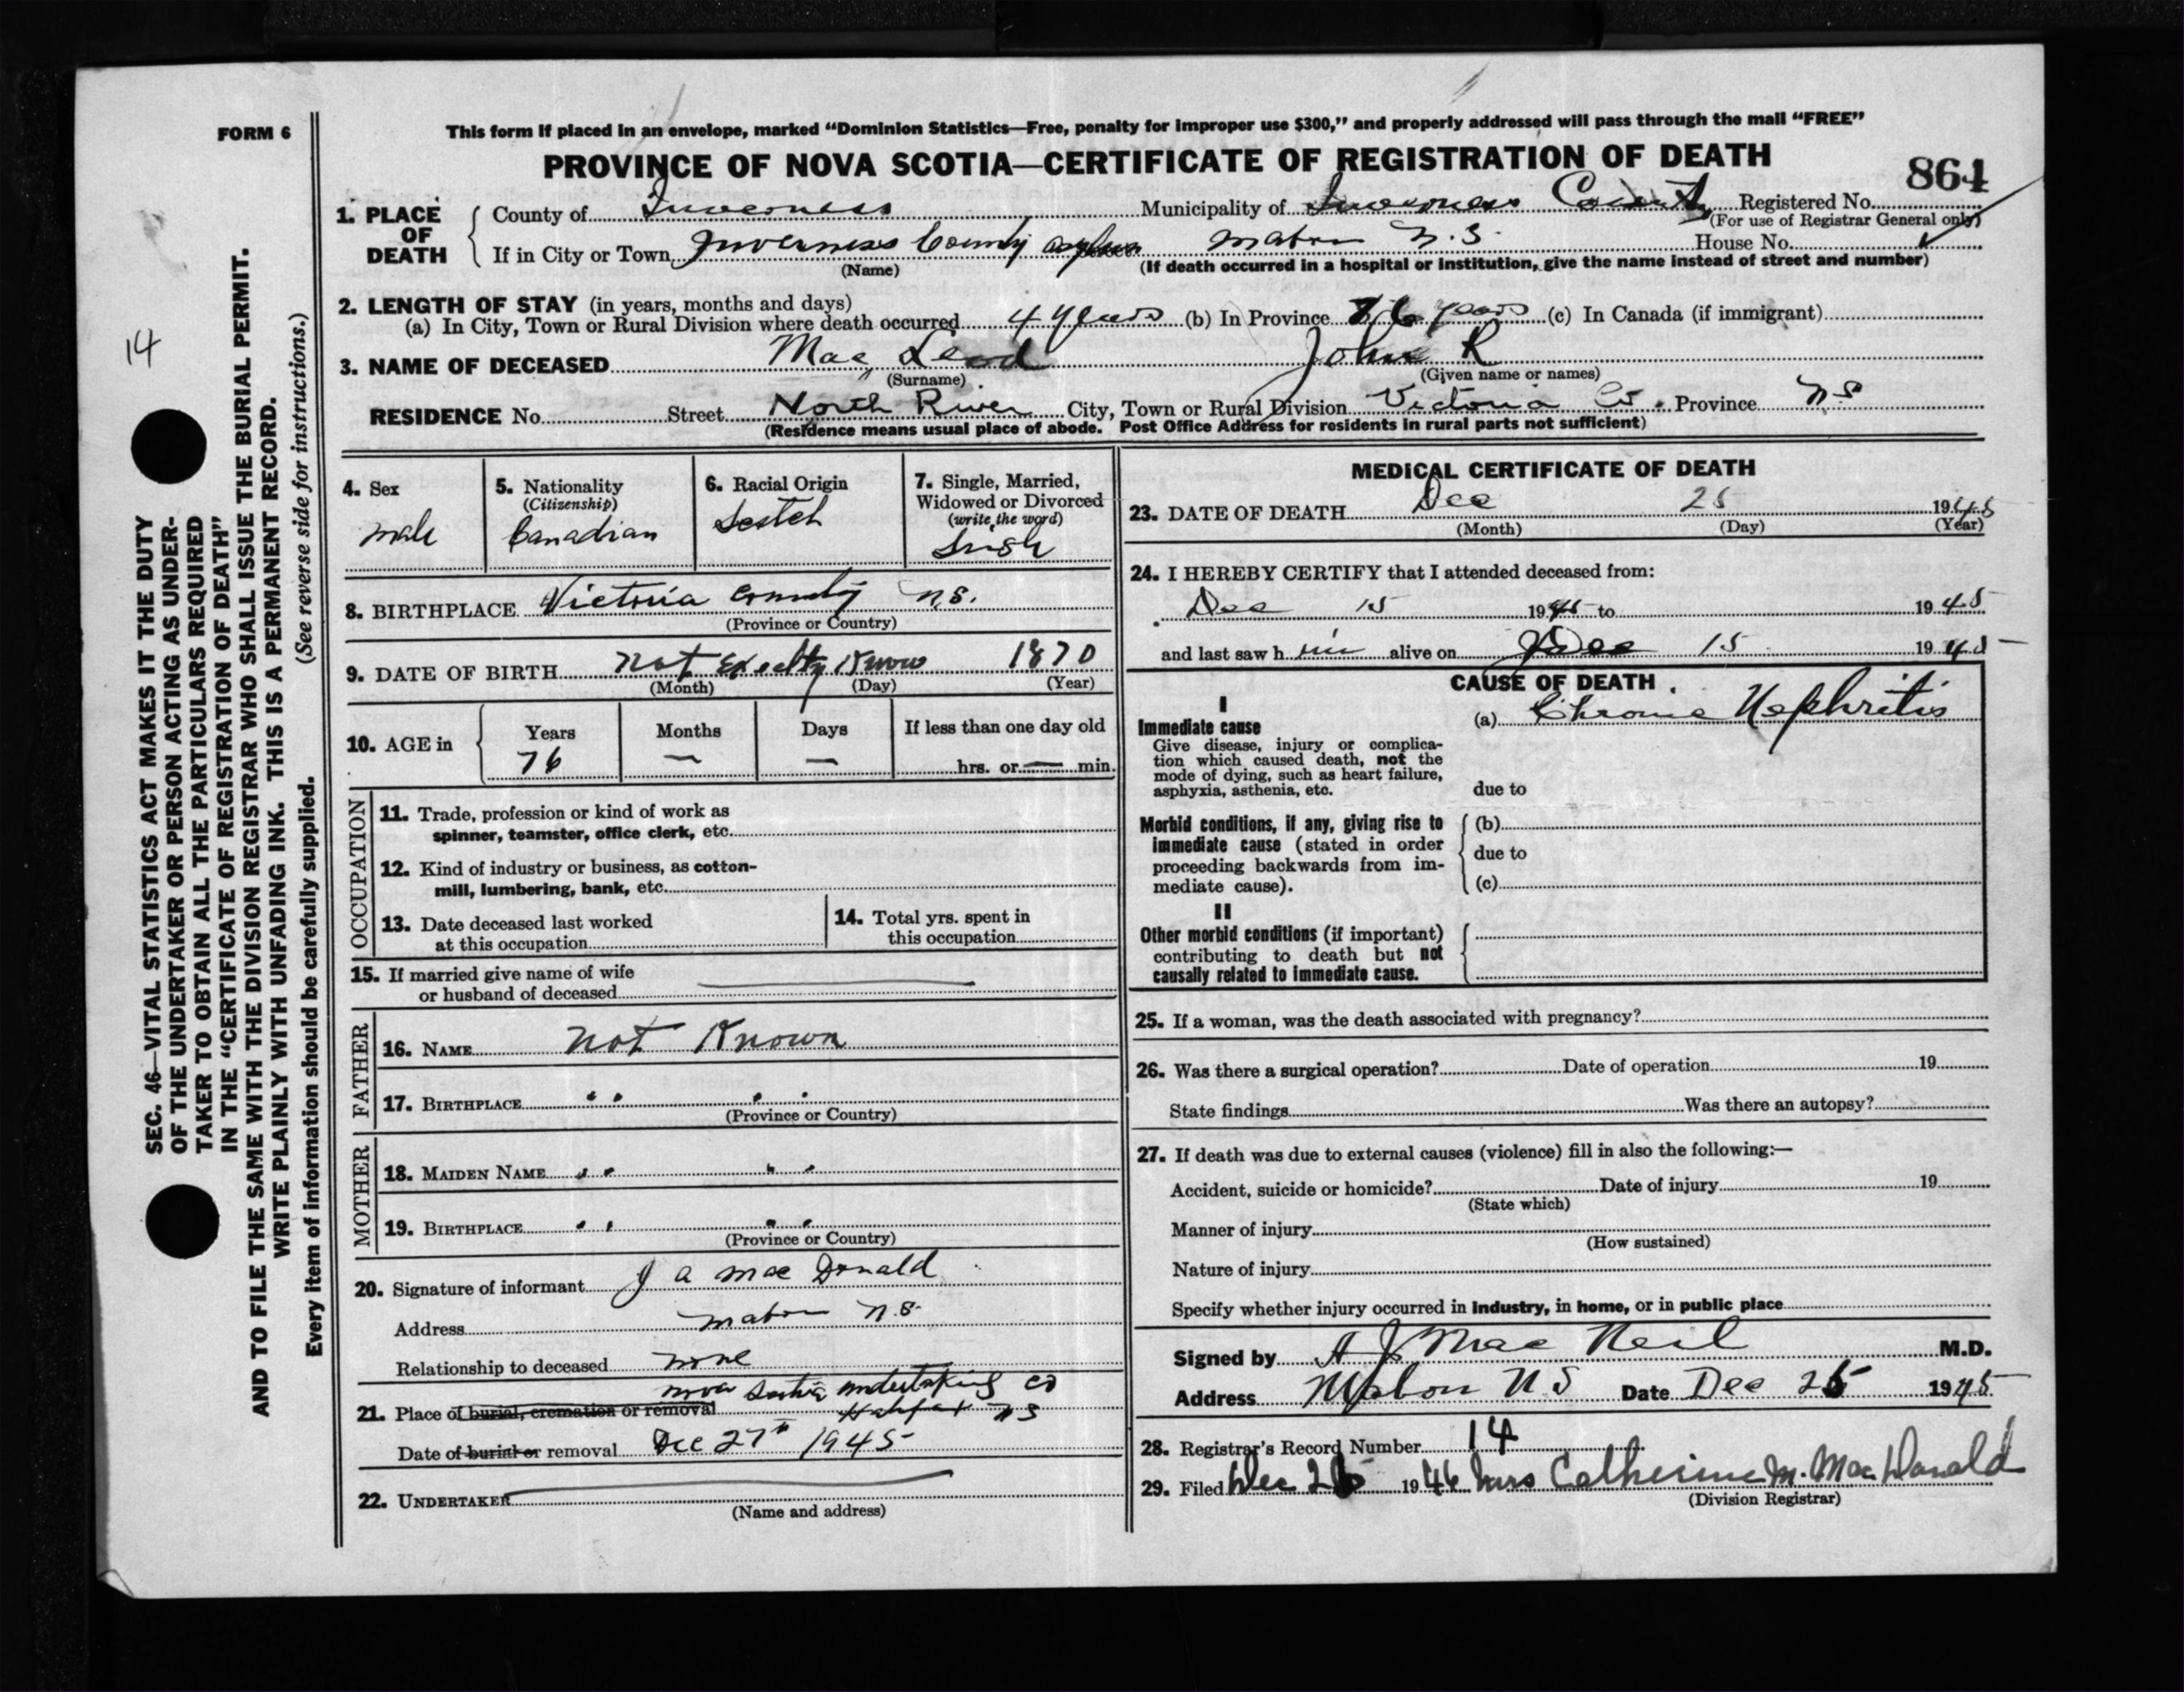 FORM 6
This form if placed in an envelope, marked “Dominion Statistics—Free, penalty for improper use $300,” and properly addressed will pass through the mail “FREE”
PROVINCE OF NOVA SCOTIA—CERTIFICATE OF REGISTRATION OF DEATH
864
1. PLACE OF DEATH
County of Inverness Municipality of Inverness County Registered No.
(For use of Registrar General only)
If in City or Town Inverness County asylum Mabou N.S. House No.
(Name) (If death occurred in a hospital or institution, give the name instead of street and number)
2. LENGTH OF STAY (in years, months and days)
(a) In City, Town or Rural Division where death occurred 4 years (b) In Province 76 years (c) In Canada (if immigrant)
3. NAME OF DECEASED Mac Leod John R
(Surname) (Given name or names)
RESIDENCE No. Street North River City, Town or Rural Division Victoria Co. Province N S
(Residence means usual place of abode. Post Office Address for residents in rural parts not sufficient)
14
SEC. 46—VITAL STATISTICS ACT MAKES IT THE DUTY
OF THE UNDERTAKER OR PERSON ACTING AS UNDER-
TAKER TO OBTAIN ALL THE PARTICULARS REQUIRED
IN THE “CERTIFICATE OF REGISTRATION OF DEATH”
AND TO FILE THE SAME WITH THE DIVISION REGISTRAR WHO SHALL ISSUE THE BURIAL PERMIT.
WRITE PLAINLY WITH UNFADING INK. THIS IS A PERMANENT RECORD.
Every item of information should be carefully supplied. (See reverse side for instructions.)
4. Sex
male
5. Nationality
(Citizenship)
Canadian
6. Racial Origin
Scotch
7. Single, Married,
Widowed or Divorced
(write the word)
Single
8. BIRTHPLACE Victoria County N.S.
(Province or Country)
9. DATE OF BIRTH Not Exactly Know 1870
(Month) (Day) (Year)
10. AGE in
Years Months Days If less than one day old
76 — — hrs. or — min.
OCCUPATION
11. Trade, profession or kind of work as
spinner, teamster, office clerk, etc.
12. Kind of industry or business, as cotton-
mill, lumbering, bank, etc.
13. Date deceased last worked
at this occupation
14. Total yrs. spent in
this occupation
15. If married give name of wife
or husband of deceased
FATHER
16. NAME Not Known
17. BIRTHPLACE " "
(Province or Country)
MOTHER
18. MAIDEN NAME " "
19. BIRTHPLACE " "
(Province or Country)
20. Signature of informant J A Mac Donald
Address Mabou N.S.
Relationship to deceased none
Nova Scotia Undertaking Co
21. Place of burial, cremation or removal Halifax N S
Date of burial or removal Dec 27th 1945
22. UNDERTAKER
(Name and address)
MEDICAL CERTIFICATE OF DEATH
23. DATE OF DEATH Dec 25 1945
(Month) (Day) (Year)
24. I HEREBY CERTIFY that I attended deceased from:
Dec 15 1945 to 1945
and last saw him alive on Dec 15 1945
CAUSE OF DEATH
I
Immediate cause
Give disease, injury or complica-
tion which caused death, not the
mode of dying, such as heart failure,
asphyxia, asthenia, etc.
(a) Chronic Nephritis
due to
Morbid conditions, if any, giving rise to
immediate cause (stated in order
proceeding backwards from im-
mediate cause).
(b)
due to
(c)
II
Other morbid conditions (if important)
contributing to death but not
causally related to immediate cause.
25. If a woman, was the death associated with pregnancy?
26. Was there a surgical operation? Date of operation 19
State findings Was there an autopsy?
27. If death was due to external causes (violence) fill in also the following:—
Accident, suicide or homicide? Date of injury 19
(State which)
Manner of injury
(How sustained)
Nature of injury
Specify whether injury occurred in industry, in home, or in public place
Signed by A J Mac Neil M.D.
Address Mabou N S Date Dec 26 1945
28. Registrar's Record Number 14
29. Filed Dec 26 1946 Mrs Catherine M. MacDonald
(Division Registrar)